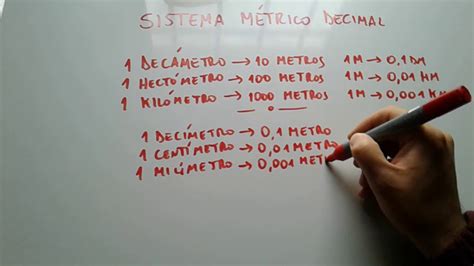 SISTEMA MÉTRICO DECIMAL
1 DECÁMETRO → 10 METROS 1M → 0,1 DM
1 HECTÓMETRO → 100 METROS 1M → 0,01 HM
1 KILÓMETRO → 1000 METROS 1M → 0,001 KM
1 DECÍMETRO → 0,1 METRO
1 CENTÍMETRO → 0,01 METRO
1 MILÍMETRO → 0,001 MET